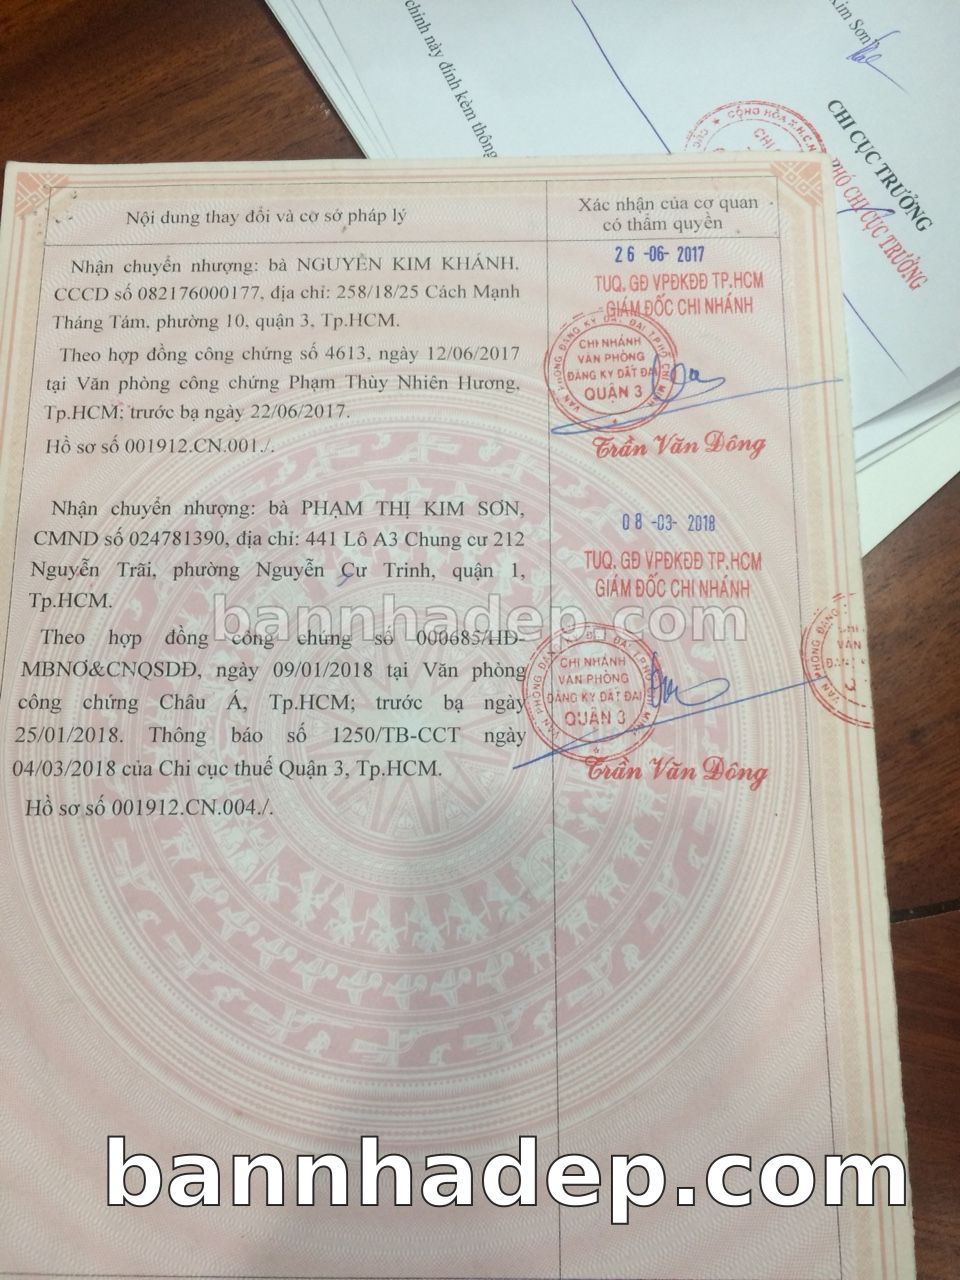 chính này đính kèm thông
Kim Sơn
CHI CỤC TRƯỞNG
PHÓ CHI CỤC TRƯỞNG
CỘNG HÒA X.H.C.N
Nội dung thay đổi và cơ sở pháp lý
Xác nhận của cơ quan
có thẩm quyền
Nhận chuyển nhượng: bà NGUYỄN KIM KHÁNH,
CCCD số 082176000177, địa chỉ: 258/18/25 Cách Mạnh
Tháng Tám, phường 10, quận 3, Tp.HCM.
Theo hợp đồng công chứng số 4613, ngày 12/06/2017
tại Văn phòng công chứng Phạm Thùy Nhiên Hương,
Tp.HCM; trước bạ ngày 22/06/2017.
Hồ sơ số 001912.CN.001./.
26 -06- 2017
TUQ. GĐ VPĐKĐĐ TP.HCM
GIÁM ĐỐC CHI NHÁNH
VĂN PHÒNG ĐĂNG KÝ ĐẤT ĐAI T.P HỒ CHÍ MINH
CHI NHÁNH
VĂN PHÒNG
ĐĂNG KÝ ĐẤT ĐAI
QUẬN 3
Trần Văn Dông
Nhận chuyển nhượng: bà PHẠM THỊ KIM SƠN,
CMND số 024781390, địa chỉ: 441 Lô A3 Chung cư 212
Nguyễn Trãi, phường Nguyễn Cư Trinh, quận 1,
Tp.HCM.
Theo hợp đồng công chứng số 000685/HĐ-
MBNƠ&CNQSDĐ, ngày 09/01/2018 tại Văn phòng
công chứng Châu Á, Tp.HCM; trước bạ ngày
25/01/2018. Thông báo số 1250/TB-CCT ngày
04/03/2018 của Chi cục thuế Quận 3, Tp.HCM.
Hồ sơ số 001912.CN.004./.
08 -03- 2018
TUQ. GĐ VPĐKĐĐ TP.HCM
GIÁM ĐỐC CHI NHÁNH
VĂN PHÒNG ĐĂNG KÝ ĐẤT ĐAI T.P HỒ CHÍ MINH
CHI NHÁNH
VĂN PHÒNG
ĐĂNG KÝ ĐẤT ĐAI
QUẬN 3
Trần Văn Dông
bannhadep.com
bannhadep.com